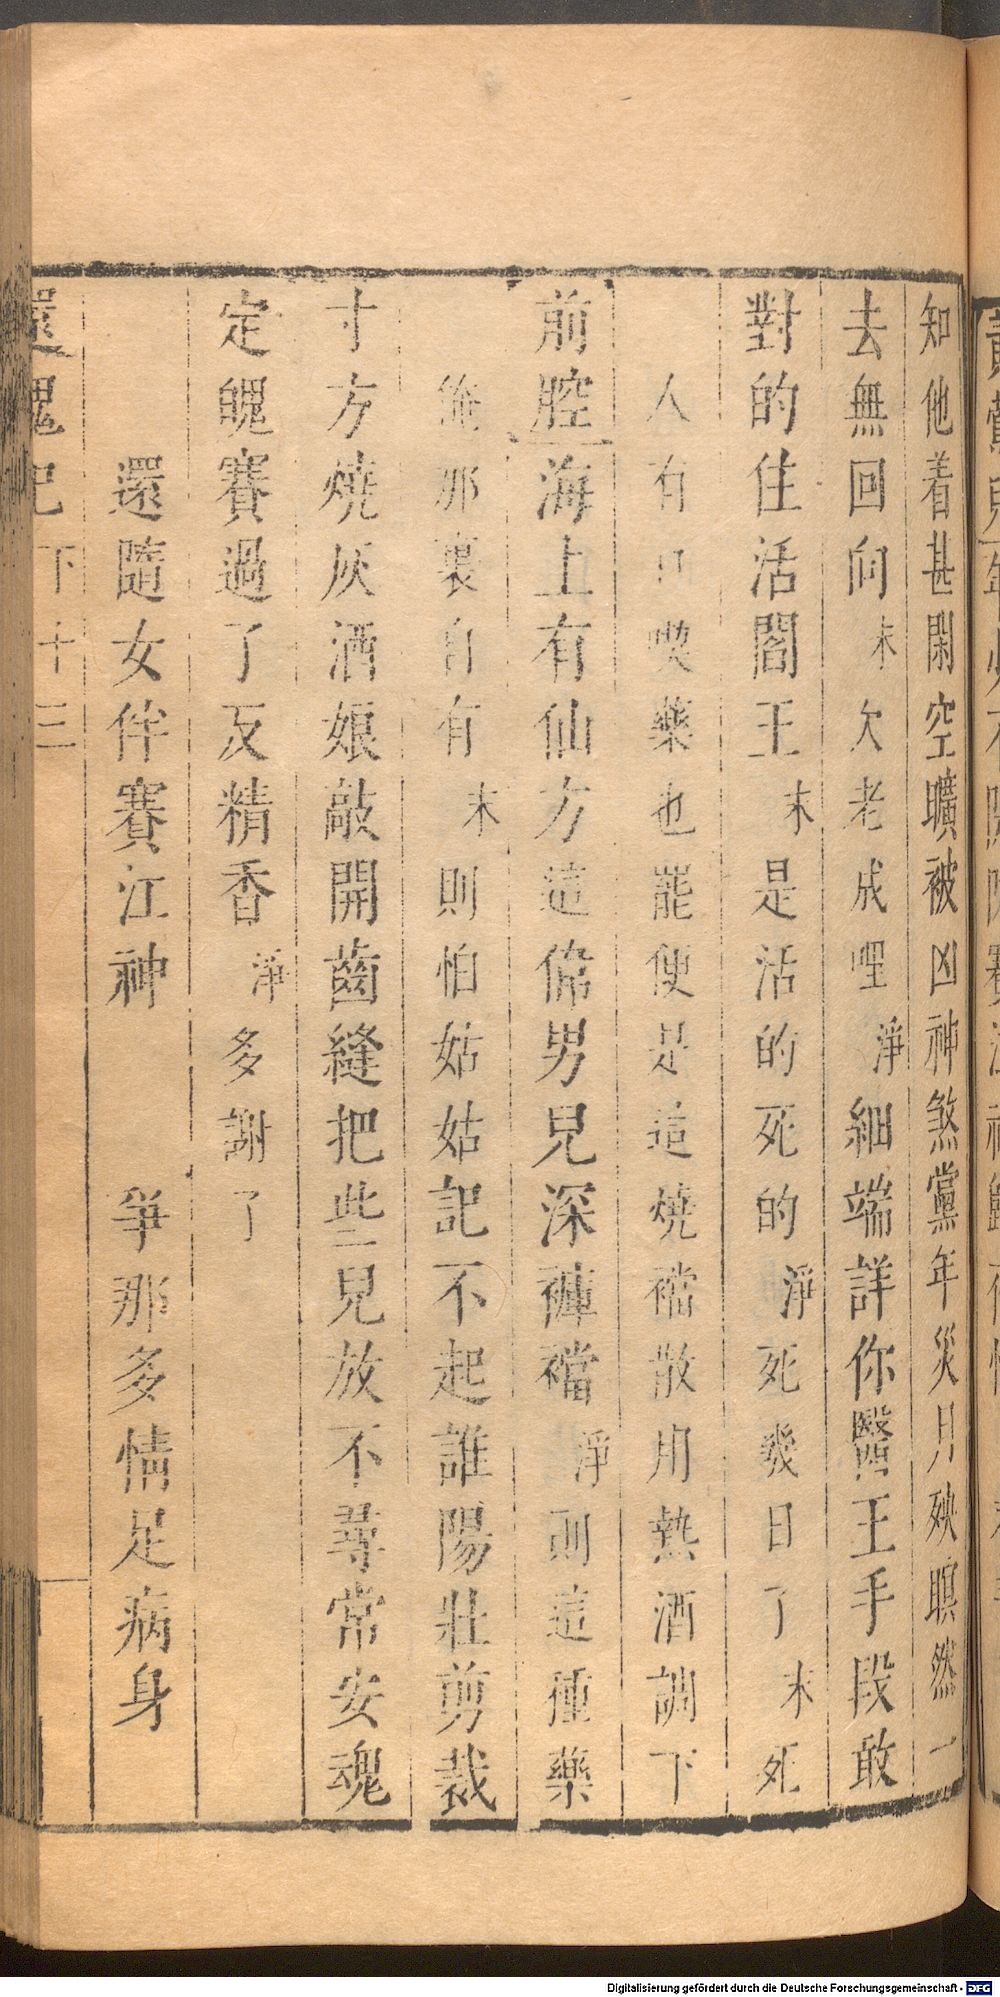 知他着甚閑空曠被凶神煞黨年災月殃瞑然一
去無回向末欠老成哩淨細端詳你醫王手段敢
對的住活閻王末是活的死的淨死幾日了末死
人有口喫藥也罷便是這燒襠散用熱酒調下
前腔海上有仙方這偉男兒深褲襠淨則這種藥
俺那裏自有末則怕姑姑記不起誰陽壯剪裁
寸方燒灰酒娘敲開齒縫把些兒放不尋常安魂
定魄賽過了反精香淨多謝了
還隨女伴賽江神　爭那多情足病身
還魂記下十三
Digitalisierung gefördert durch die Deutsche Forschungsgemeinschaft - DFG